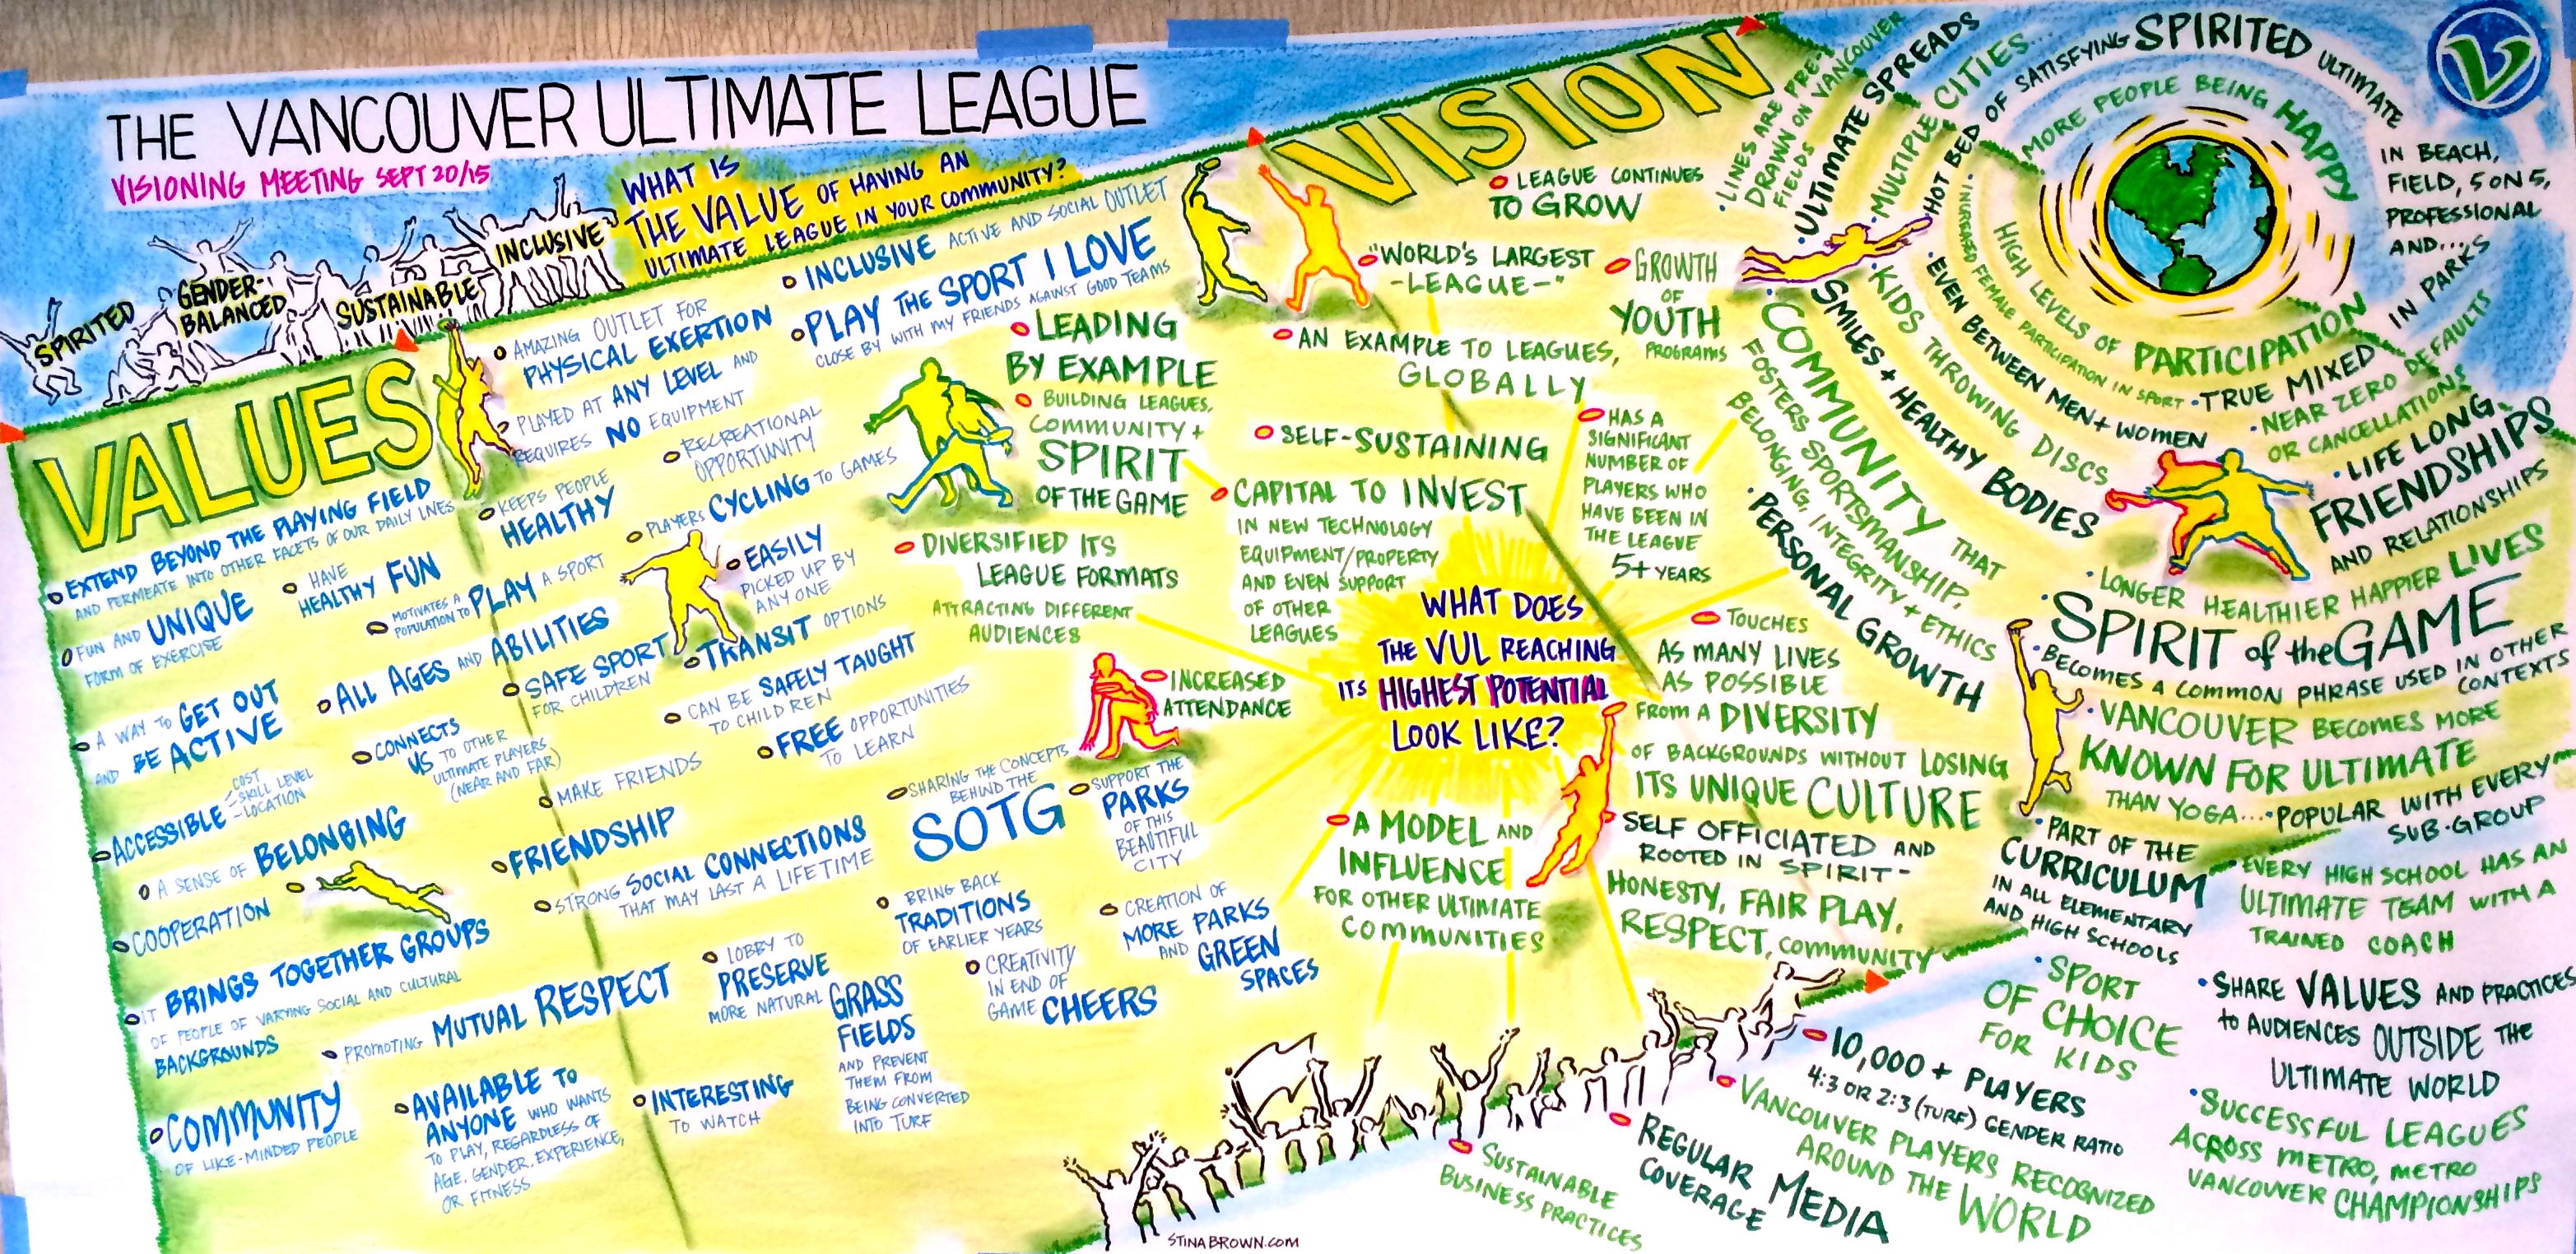 THE VANCOUVER ULTIMATE LEAGUE
VISIONING MEETING SEPT 20/15
SPIRITED
GENDER-
BALANCED
SUSTAINABLE
INCLUSIVE
WHAT IS
THE VALUE OF HAVING AN
ULTIMATE LEAGUE IN YOUR COMMUNITY?
VALUES
EXTEND BEYOND THE PLAYING FIELD
AND PERMEATE INTO OTHER FACETS OF OUR DAILY LIVES
FUN AND UNIQUE
FORM OF EXERCISE
HAVE
HEALTHY FUN
MOTIVATES A
POPULATION TO PLAY A SPORT
A WAY TO GET OUT
AND BE ACTIVE
ALL AGES AND ABILITIES
CONNECTS
US TO OTHER
ULTIMATE PLAYERS
(NEAR AND FAR)
ACCESSIBLE
COST
-SKILL LEVEL
-LOCATION
A SENSE OF BELONGING
COOPERATION
IT BRINGS TOGETHER GROUPS
OF PEOPLE OF VARYING SOCIAL AND CULTURAL
BACKGROUNDS
PROMOTING MUTUAL RESPECT
COMMUNITY
OF LIKE-MINDED PEOPLE
AVAILABLE TO
ANYONE WHO WANTS
TO PLAY, REGARDLESS OF
AGE, GENDER, EXPERIENCE,
OR FITNESS
INTERESTING
TO WATCH
AMAZING OUTLET FOR
PHYSICAL EXERTION
PLAYED AT ANY LEVEL AND
REQUIRES NO EQUIPMENT
KEEPS PEOPLE
HEALTHY
RECREATIONAL
OPPORTUNITY
PLAYERS CYCLING TO GAMES
EASILY
PICKED UP BY
ANYONE
SAFE SPORT
FOR CHILDREN
TRANSIT OPTIONS
CAN BE SAFELY TAUGHT
TO CHILDREN
FREE OPPORTUNITIES
TO LEARN
MAKE FRIENDS
FRIENDSHIP
STRONG SOCIAL CONNECTIONS
THAT MAY LAST A LIFETIME
INCLUSIVE ACTIVE AND SOCIAL OUTLET
PLAY THE SPORT I LOVE
CLOSE BY WITH MY FRIENDS AGAINST GOOD TEAMS
SHARING THE CONCEPTS
BEHIND THE
SOTG
SUPPORT THE
PARKS
OF THIS
BEAUTIFUL
CITY
BRING BACK
TRADITIONS
OF EARLIER YEARS
CREATION OF
MORE PARKS
AND GREEN
SPACES
LOBBY TO
PRESERVE
MORE NATURAL GRASS
FIELDS
AND PREVENT
THEM FROM
BEING CONVERTED
INTO TURF
CREATIVITY
IN END OF
GAME CHEERS
VISION
LEAGUE CONTINUES
TO GROW
"WORLD'S LARGEST
-LEAGUE-"
GROWTH
OF
YOUTH
PROGRAMS
LEADING
BY EXAMPLE
BUILDING LEAGUES,
COMMUNITY +
SPIRIT
OF THE GAME
AN EXAMPLE TO LEAGUES,
GLOBALLY
SELF-SUSTAINING
CAPITAL TO INVEST
IN NEW TECHNOLOGY
EQUIPMENT/PROPERTY
AND EVEN SUPPORT
OF OTHER
LEAGUES
HAS A
SIGNIFICANT
NUMBER OF
PLAYERS WHO
HAVE BEEN IN
THE LEAGUE
5+ YEARS
DIVERSIFIED ITS
LEAGUE FORMATS
ATTRACTING DIFFERENT
AUDIENCES
INCREASED
ATTENDANCE
WHAT DOES
THE VUL REACHING
ITS HIGHEST POTENTIAL
LOOK LIKE?
TOUCHES
AS MANY LIVES
AS POSSIBLE
FROM A DIVERSITY
OF BACKGROUNDS WITHOUT LOSING
ITS UNIQUE CULTURE
A MODEL AND
INFLUENCE
FOR OTHER ULTIMATE
COMMUNITIES
SELF OFFICIATED AND
ROOTED IN SPIRIT -
HONESTY, FAIR PLAY,
RESPECT, COMMUNITY
LINES ARE PRE-
DRAWN ON VANCOUVER
FIELDS
ULTIMATE SPREADS
MULTIPLE CITIES...
HOT BED OF SATISFYING SPIRITED ULTIMATE
IN BEACH,
FIELD, 5 ON 5,
PROFESSIONAL
AND...
IN PARKS
MORE PEOPLE BEING HAPPY
HIGH LEVELS OF PARTICIPATION
INCREASED FEMALE PARTICIPATION IN SPORT
TRUE MIXED
EVEN BETWEEN MEN + WOMEN
NEAR ZERO DEFAULTS
OR CANCELLATIONS
KIDS THROWING DISCS
SMILES + HEALTHY BODIES
LIFE LONG
FRIENDSHIPS
AND RELATIONSHIPS
COMMUNITY THAT
FOSTERS SPORTSMANSHIP,
BELONGING, INTEGRITY + ETHICS
PERSONAL GROWTH
LONGER HEALTHIER HAPPIER LIVES
SPIRIT of the GAME
BECOMES A COMMON PHRASE USED IN OTHER
CONTEXTS
VANCOUVER BECOMES MORE
KNOWN FOR ULTIMATE
THAN YOGA...
POPULAR WITH EVERY
SUB-GROUP
PART OF THE
CURRICULUM
IN ALL ELEMENTARY
AND HIGH SCHOOLS
EVERY HIGH SCHOOL HAS AN
ULTIMATE TEAM WITH A
TRAINED COACH
SPORT
OF CHOICE
FOR KIDS
SHARE VALUES AND PRACTICES
to AUDIENCES OUTSIDE THE
ULTIMATE WORLD
10,000+ PLAYERS
4:3 OR 2:3 (TURF) GENDER RATIO
VANCOUVER PLAYERS RECOGNIZED
AROUND THE WORLD
SUCCESSFUL LEAGUES
ACROSS METRO, METRO
VANCOUVER CHAMPIONSHIPS
REGULAR MEDIA
COVERAGE
SUSTAINABLE
BUSINESS PRACTICES
STINABROWN.COM
V